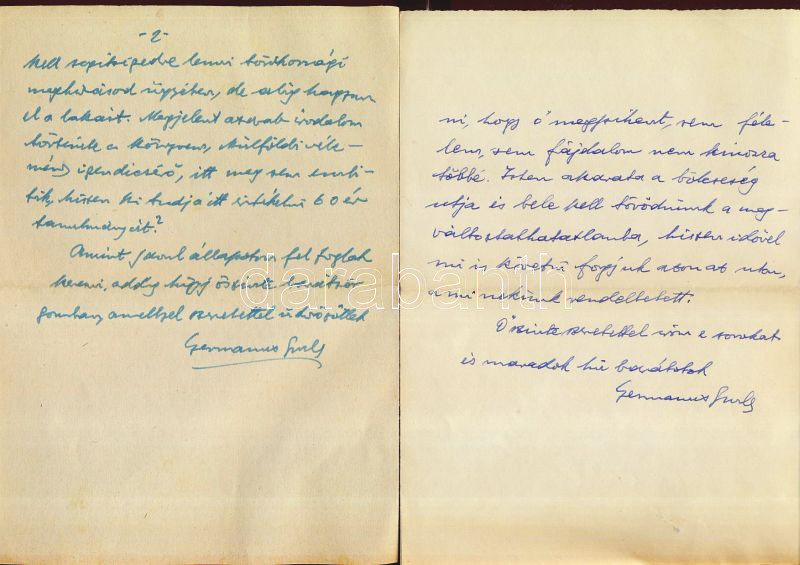 -2-
kell segítségedre lenni törökországi
meghívásod ügyében, de alig hagyom
el a lakást. Megjelent az arab irodalom
története c. könyvem, külföldi véle-
mény igen dicsérő, itt meg sem emlí-
tik, hiszen ki tudja itt értékelni 60 év
tanulmányait?
Amint javul állapotom fel foglak
keresni, addig higyj őszinte
szeretettel üdvözöllek
Germanus Gyula
ni, hogy ő megpihent, sem féle-
lem, sem fájdalom nem kínozza
többé. Isten akarata a bölcseség
utja és bele kell törődnünk a meg-
változtathatatlanba, hiszen idővel
mi is követni fogjuk azon az uton,
a mi nekünk rendeltetett.
Őszinte szeretettel irom e sorokat
és maradok hű barátotok
Germanus Gyula
darabanth